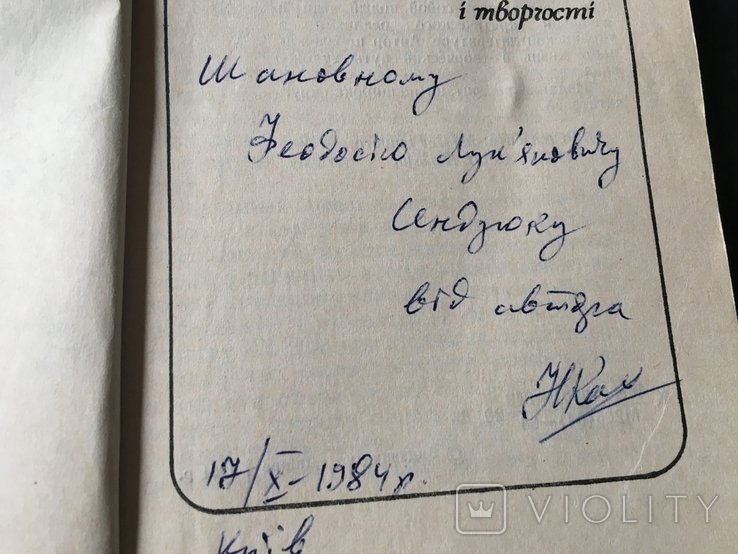 і творчості
Шановному
Феодосію Лук'яновичу
Сендзюку
від автора
17/X-1984 р.
Київ
VIOLITY